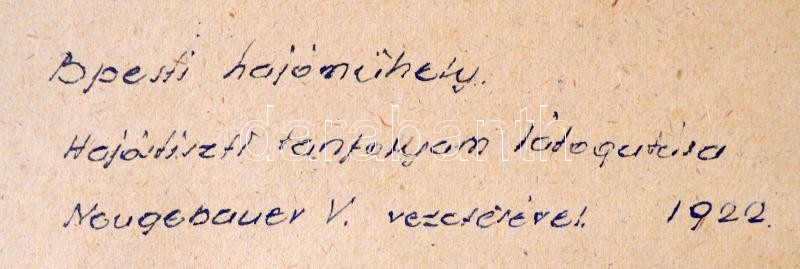 Bpesti hajóműhely.
Hajótiszti tanfolyam látogatása
Neugebauer V. vezetésével. 1922.
darabanth